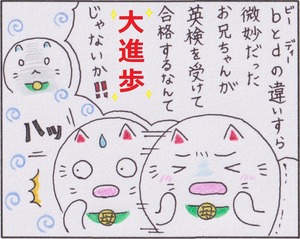 bとdの違いすら
ビー ディー
微妙だった
お兄ちゃんが
英検を受けて
合格するなんて
大進歩
じゃないか!!
ハッ